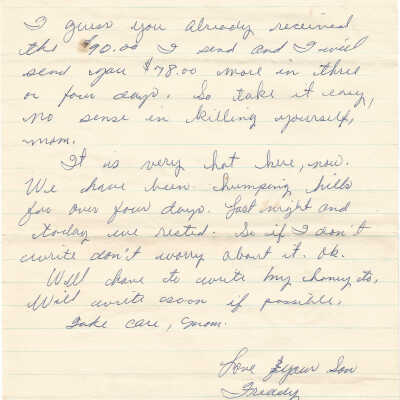 I guess you already received
the $90.00 I send and I will
send you $78.00 more in three
or four days. So take it easy,
no sense in killing yourself,
mom.
It is very hot here, now.
We have been humping hills
for over four days. Last night and
today we rested. So if I don't
write don't worry about it. Ok.
Will have to write my honey to.
Will write soon if possible.
Take care, mom.
Love your Son
Freddy